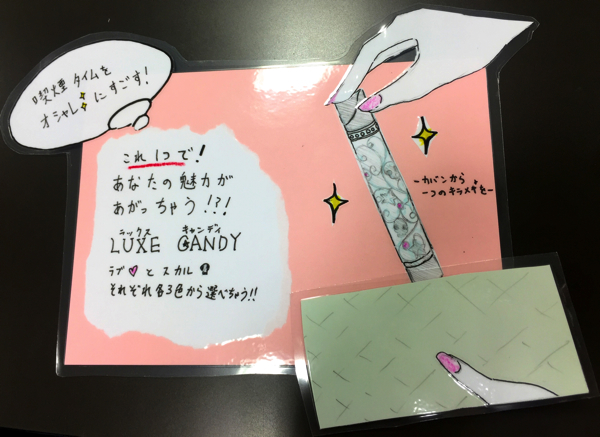 喫煙タイムを
オシャレにすごす!
これ1つで!
あなたの魅力が
あがっちゃう!?!
ラックス キャンディ
LUXE CANDY
ラブ♥とスカル
それぞれ各3色から選べちゃう!!
ーカバンから
一つのキラメキをー